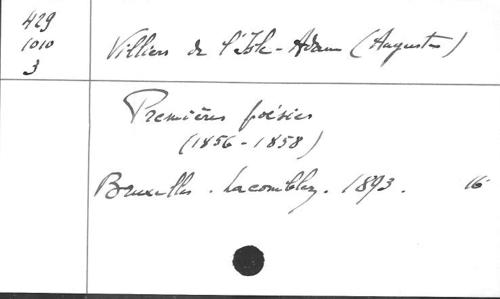 429
1010
3
Villiers de l'Isle-Adam (Auguste)
Premières poésies
(1856-1858)
Bruxelles. Lacomblez. 1893. 16